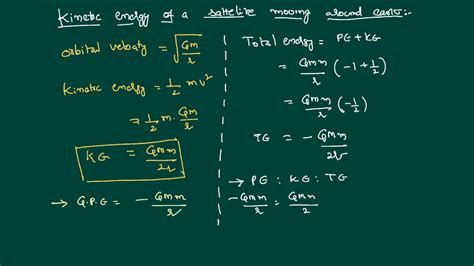 Kinetic energy of a satellite moving around earth:-
orbital velocity = √(GM/r)
Kinetic energy = 1/2 mv²
= 1/2 m. GM/r
KE = GMm/2r
→ G.P.E = - GMm/r
Total energy = PE + KE
= GMm/r (-1 + 1/2)
= GMm/r (-1/2)
TE = - GMm/2r
→ PE : KE : TE
- GMm/r = GMm/2